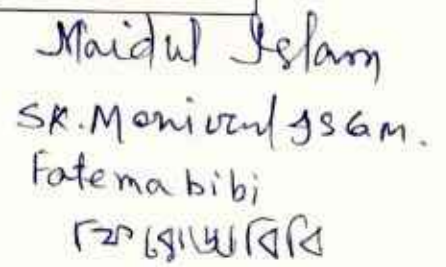 Maidul Islam
SK. Monirul ISlam.
Fatema bibi
বিবি